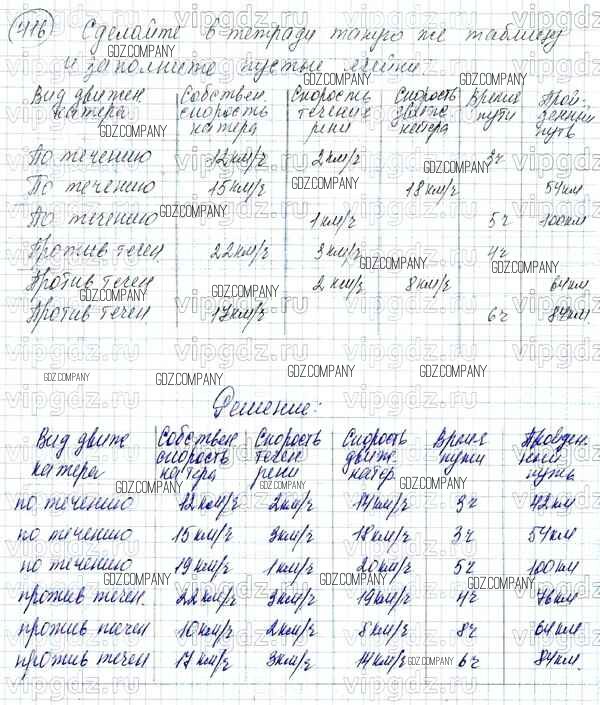 416 Сделайте в тетради такую же таблицу
GDZ.COMPANY
и заполните пустые ячейки
Вид движен. катера Собствен. скорость катера Скорость течения реки Скорость движ. катера Время пути Пройденный путь
По течению 12км/г 2км/г 3ч
По течению 15км/г 18км/г 54км
По течению 1км/г 5ч 100км
Против течен 22км/г 3км/г 4ч
Против течен 2км/г 8км/г 64км
Против течен 17км/г 6ч 84км.
Решение:
Вид движ катера Собствен скорость катера Скорость течен реки Скорость движ. катер Время пути Пройденный путь
по течению 12км/г 2км/г 14км/г 3ч 42км
по течению 15км/г 3км/г 18км/г 3ч 54км
по течению 19км/г 1км/г 20км/г 5ч 100км
против течен. 22км/г 3км/г 19км/г 4ч 76км
против течен 10км/г 2км/г 8км/г 8ч 64км
против течен 17км/г 3км/г 14км/г 6ч 84км.
vipgdz.ru